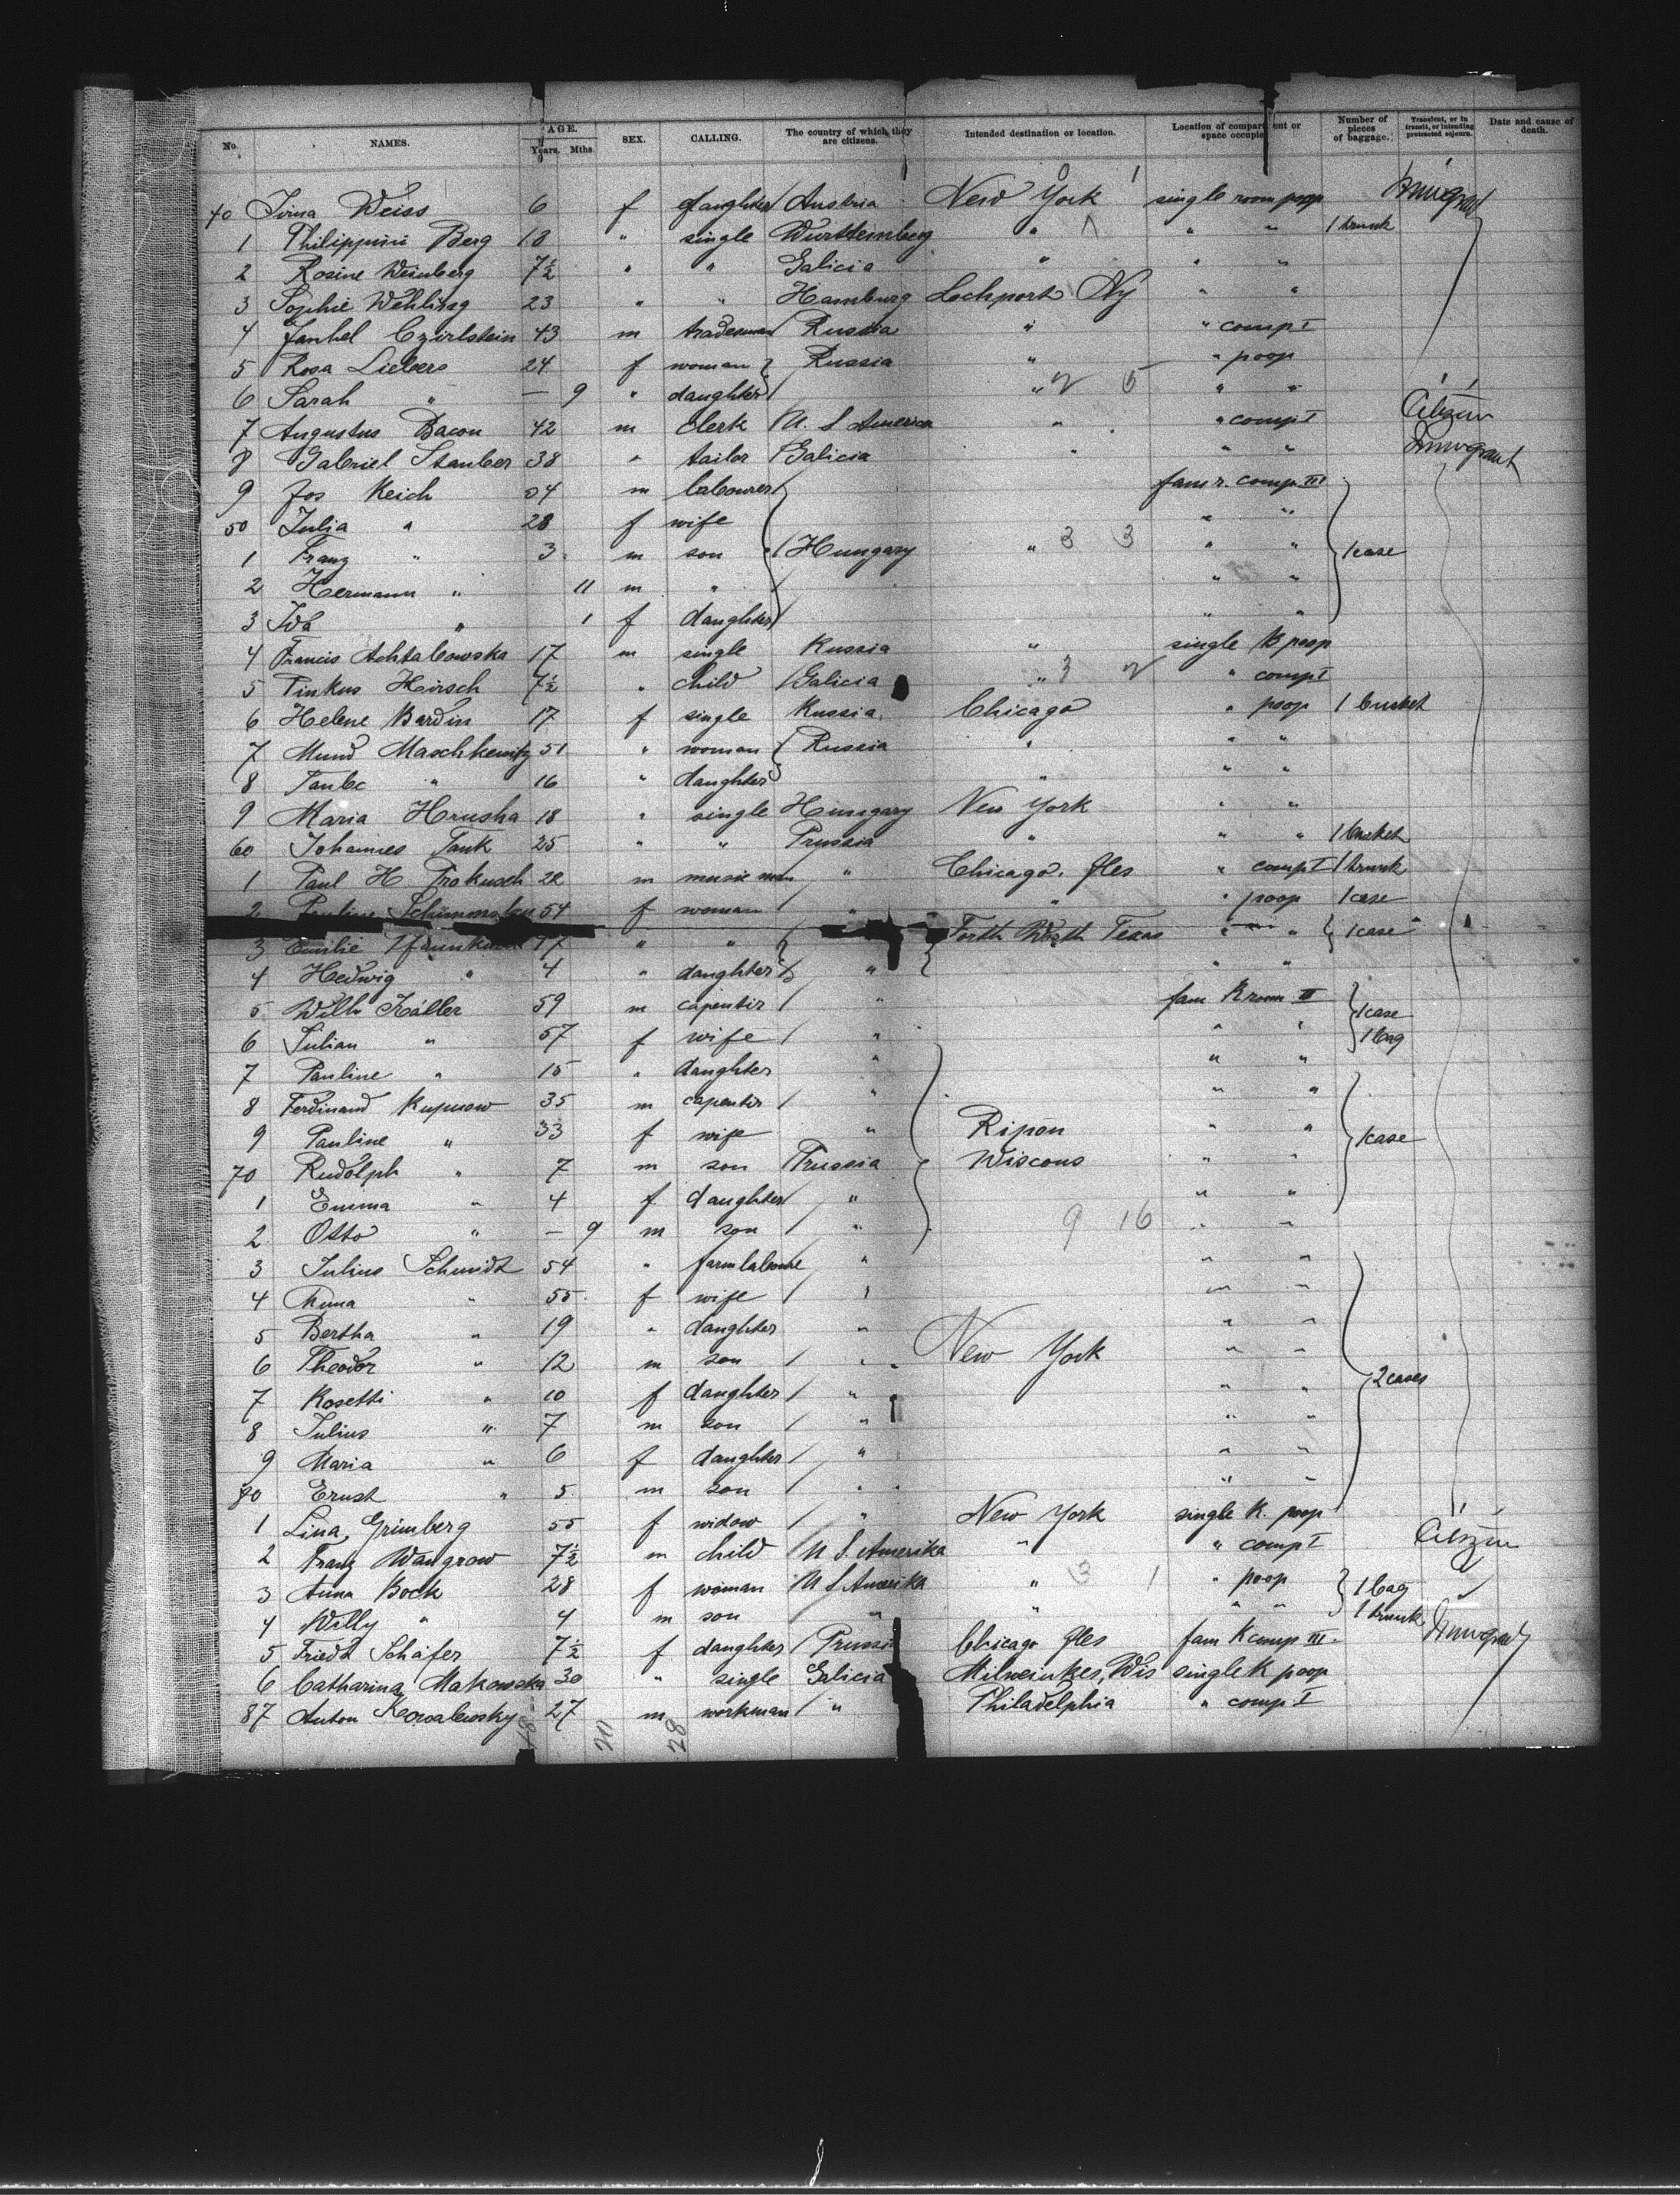 No. NAMES. AGE. Years. Mths. SEX. CALLING. The country of which they are citizens. Intended destination or location. Location of compartment or space occupied Number of pieces of baggage. Transient, or in transit, or intending protracted sojourn. Date and cause of death.
40 Irma Weiss 6 f daughter Austria New York single room poop
1 Berg 18 " single Wurttemberg " " " 1 trunk
2 Rosine Weinberg 7½ " " Galicia " " "
3 Sophie Wehling 23 " " Hamburg Lockport Ny " "
4 43 m tradesman Russia " " comp I
5 Rosa 24 f woman Russia " " poop
6 Sarah " — 9 " daughter " " "
7 Augustus Bacon 42 m Clerk U. S America " " comp I
8 Gabriel Stauber 38 " tailor Galicia " " " Immigrant
9 Jos Keich 34 m labourer fam r. comp III
50 Julia " 28 f wife " "
1 Franz " 3 m son Hungary " 3 3 " " 1 case
2 Hermann " 11 m " " "
3 Ida " 1 f daughter " "
4 Francis Achtabowska 17 m single Russia " single K poop
5 Pinkus Hirsch 7½ " child Galicia " 3 2 " comp I
6 Helene Bardin 17 f single Russia Chicago " poop 1
7 51 " woman Russia " " "
8 Taube " 16 " daughter " " "
9 Maria Hrusha 18 " single Hungary New York " "
60 Johannes Tank 25 " " Prussia " " "
1 Paul H Prokusch 22 m music man " Chicago. Jles " comp I 1 trunk
2 Pauline 54 f woman " " " poop 1 case
3 Emilie " " Forth Worth Texas " " 1 case
4 Hedwig " 4 " daughter " " "
5 Wilh Käller 59 m capentir " fam K room III 1 case
6 Julian " 57 f wife " " " 1 bag
7 Pauline " 15 " daughter " " "
8 Ferdinand 35 m capentir " " "
9 Pauline " 33 f wife " Ripon " " 1 case
70 Rudolph " 7 m son Prussia Wiscons " "
1 Emma " 4 f daughter " " "
2 Otto " — 9 m son " 9 16 " "
3 Julius Schmidt 54 " " " "
4 " 55 f wife " " "
5 Bertha " 19 " daughter " " "
6 Theodor " 12 m son " New York " "
7 Rosetti " 10 f daughter " " " 2 cases
8 Julius " 7 m son " " "
9 Maria " 6 f daughter " " "
80 Ernst " 5 m son " " "
1 Lina Grimberg 55 f widow " New York single K. poop
2 Franz Wangrow 7½ m child U S. Amerika " " comp I
3 Anna Bock 28 f woman U S Amerika " 3 1 " poop 1 bag
4 Willy " 4 m son " " " " 1 trunk
5 Friedr Schäfer 7½ f daughter Prussia Chicago Jles fam K comp III.
6 Catharina Makowska 30 " single Galicia Milweinkes, Wis single K poop
87 Anton Kowalewsky 27 m workman " Philadelphia " comp I
28